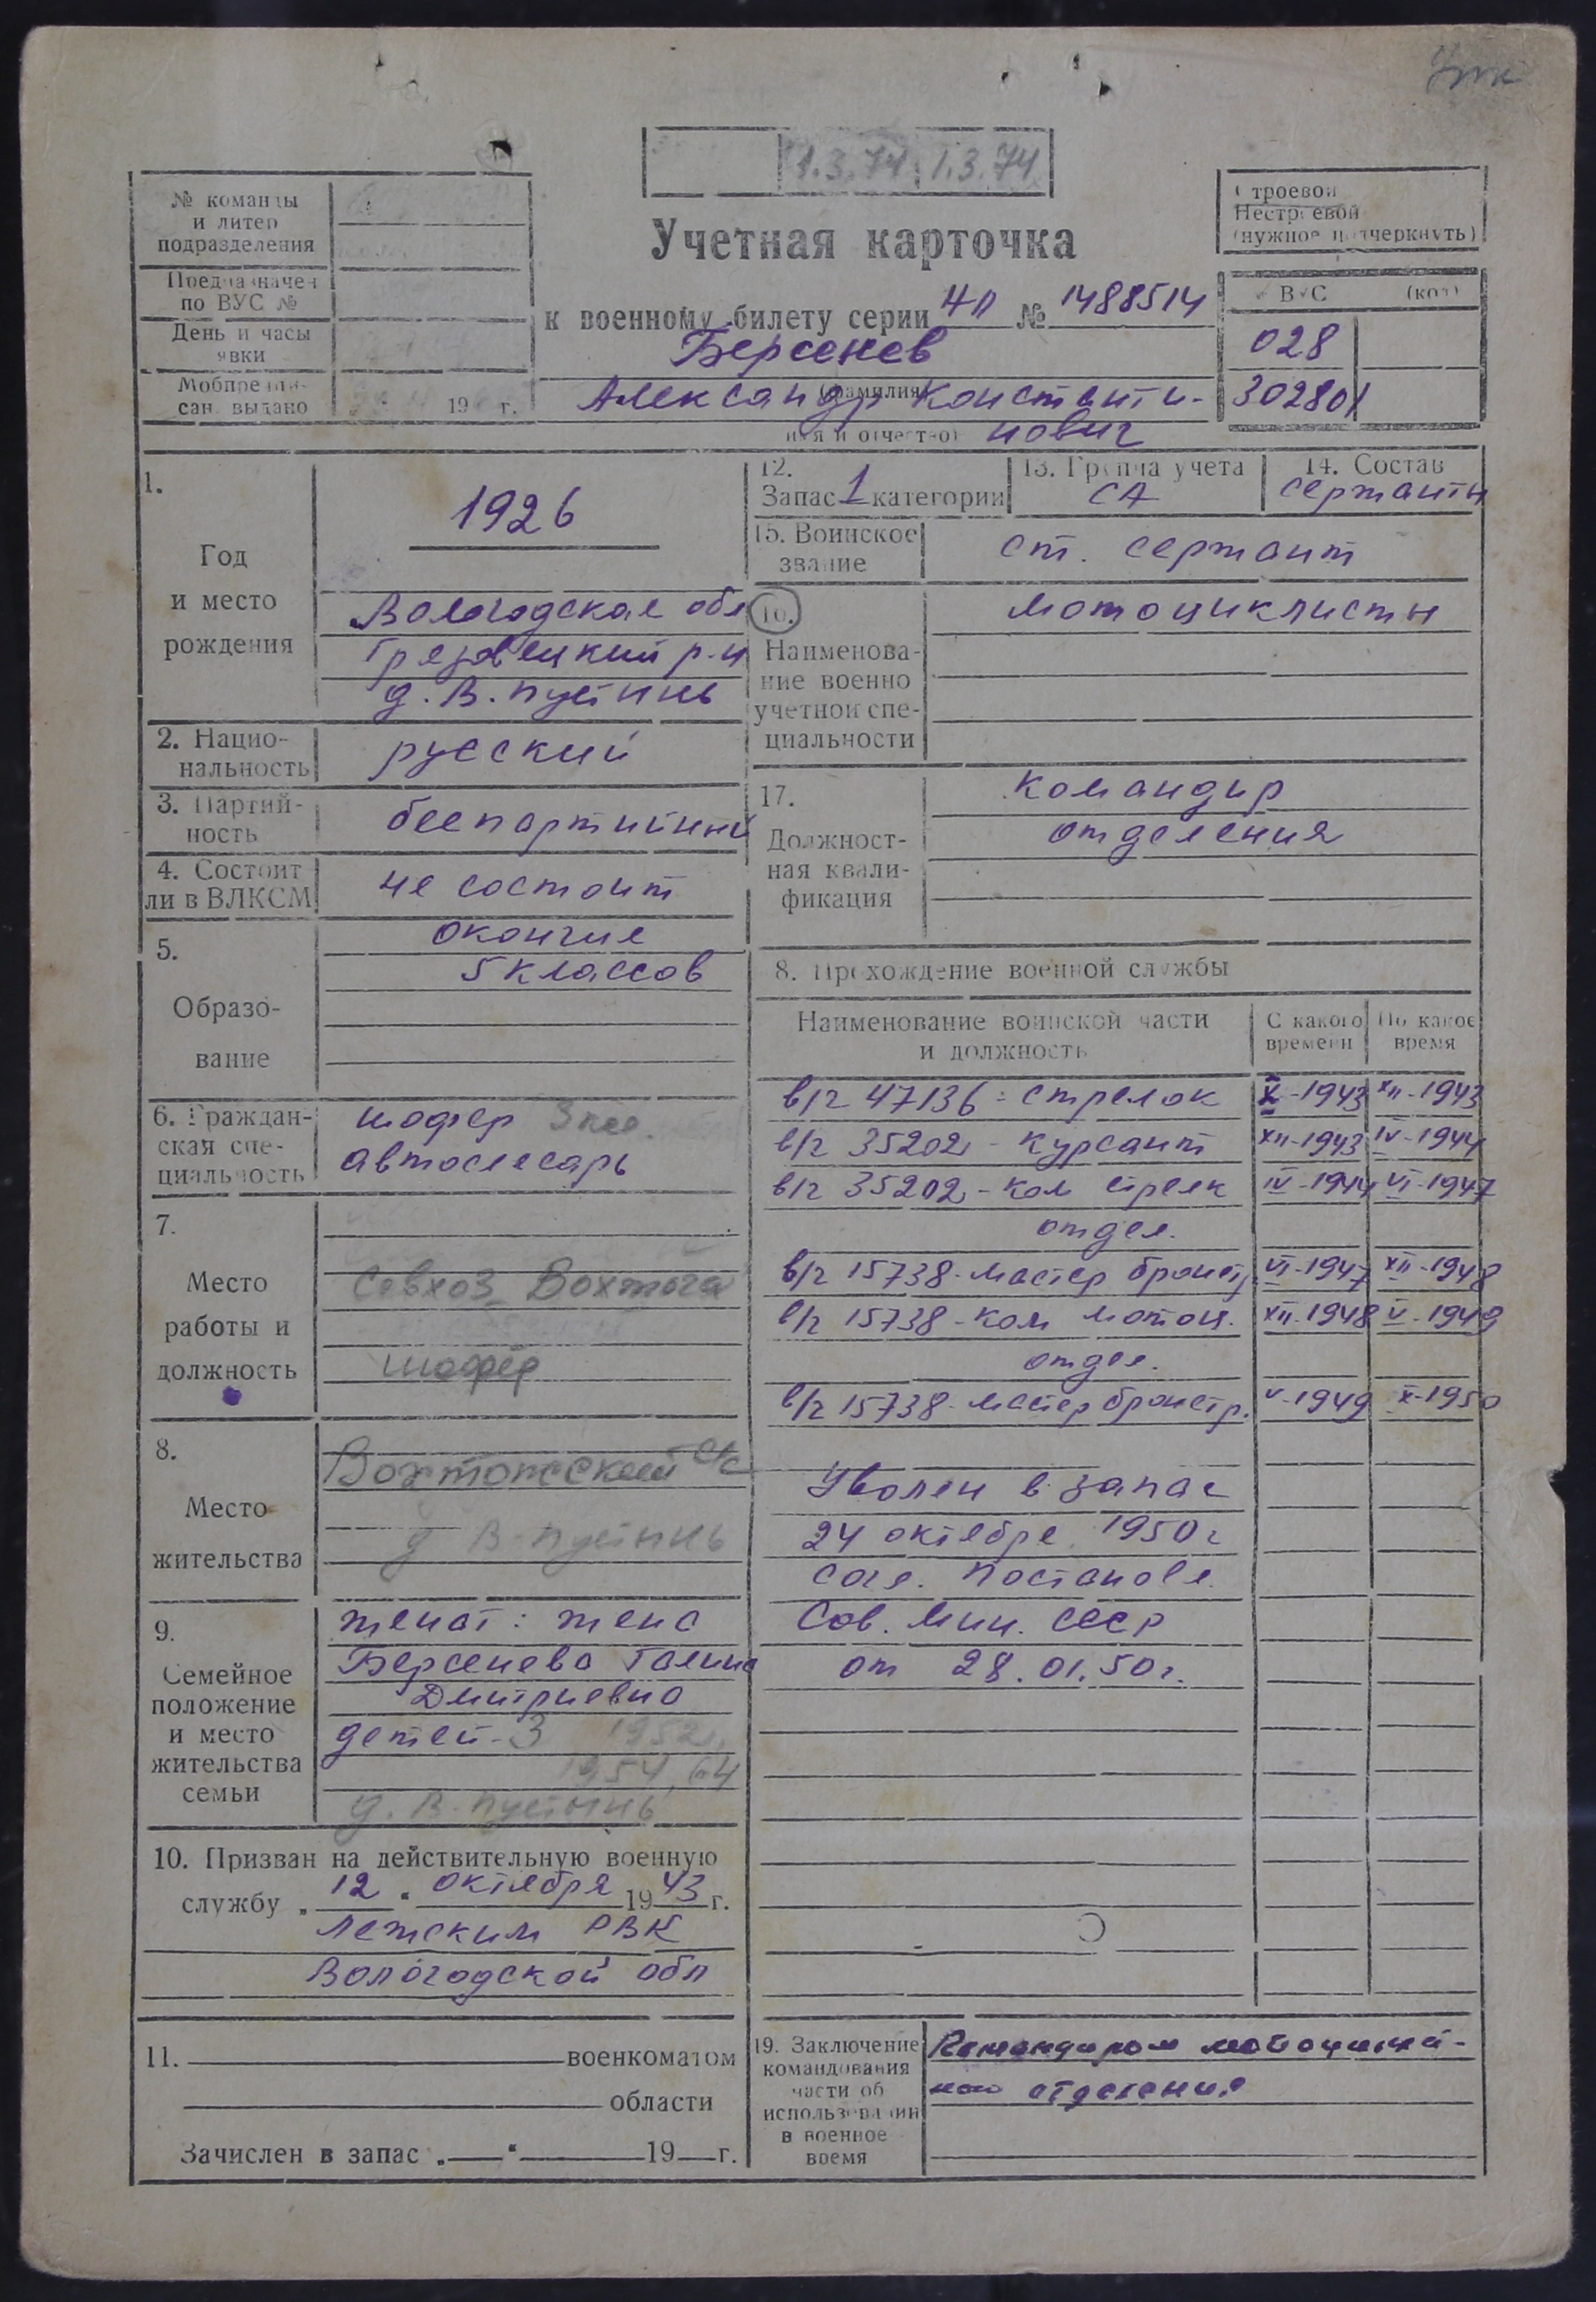 1.3.74 1.3.74
№ команды
и литер
подразделения
Предназначен
по ВУС №
День и часы
явки
Мобпредпи-
сан. выдано 19 г.
Учетная карточка
к военному билету серии НП № 1488514
Берсенев
(фамилия)
Александр Константи-
(имя и отчество) нович
Строевой
Нестроевой
(нужное подчеркнуть)
ВУС (код)
028
302801
1.
Год
и место
рождения
1926
Вологодская обл
Грязовецкий р-н
д. В. Пустынь
2. Нацио-
нальность
русский
3. Партий-
ность
беспартийный
4. Состоит
ли в ВЛКСМ
не состоит
5.
Образо-
вание
окончил
5 классов
6. Граждан-
ская спе-
циальность
шофер 3 кл.
автослесарь
7.
Место
работы и
должность
Совхоз Вохтога
шофер
8.
Место
жительства
Вохтожский с/с
д В-Пустынь
9.
Семейное
положение
и место
жительства
семьи
женат: жена
Берсенева Галина
Дмитриевна
детей-3 1952,
1954, 64
д. В. Пустынь
10. Призван на действительную военную
службу „12" октября 1943 г.
Лежским РВК
Вологодской обл
11. военкоматом
области
Зачислен в запас „ " 19 г.
12.
Запас 1 категории
13. Группа учета
СА
14. Состав
сержанты
15. Воинское
звание
ст. сержант
16.
Наименова-
ние военно
учетной спе-
циальности
мотоциклисты
17.
Должност-
ная квали-
фикация
командир
отделения
8. Прохождение военной службы
Наименование воинской части
и должность
С какого
времени
По какое
время
в/ч 47136 - стрелок X-1943 XII-1943
в/ч 35202 - курсант XII-1943 IV-1944
в/ч 35202 - ком стрелк IV-1944 VI-1947
отдел.
в/ч 15738 - мастер бронетр VI-1947 XII-1948
в/ч 15738 - ком мотоц. XII-1948 V-1949
отдел.
в/ч 15738 - мастер бронетр. V-1949 X-1950
Уволен в запас
24 октября 1950 г
согл. Постановл.
Сов. Мин. СССР
от 28.01.50 г.
19. Заключение
командования
части об
использовании
в военное
время
Командиром мотоциклет-
ного отделения